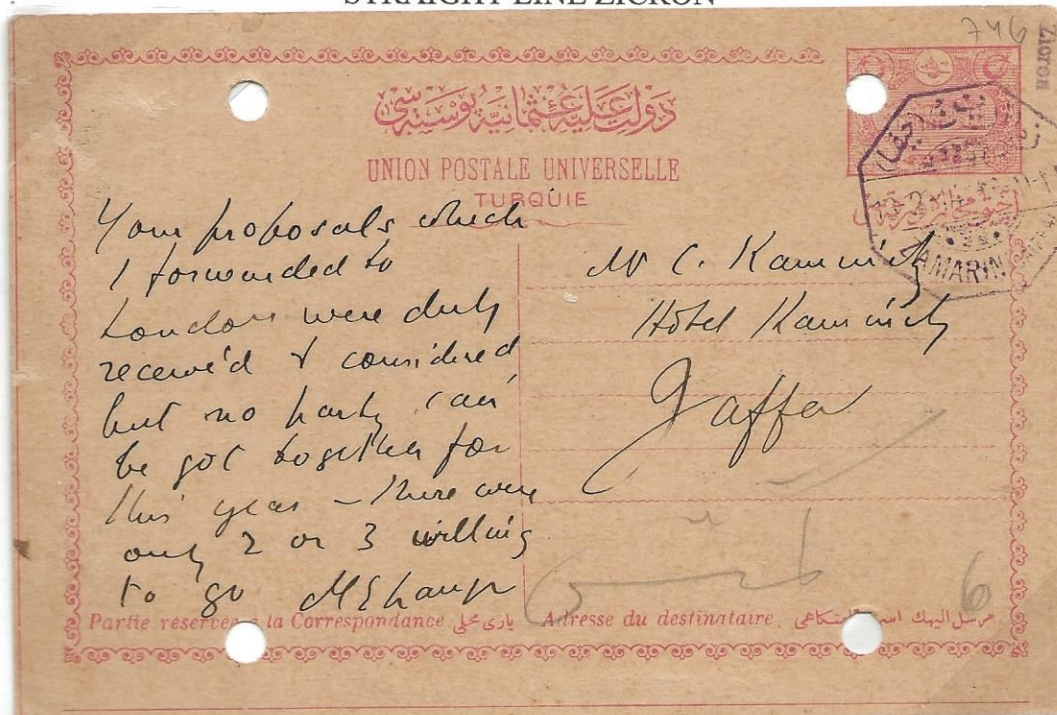 STRAIGHT LINE ZICRON
746
Zicron
دولت عليه عثمانيه پوسته سی
UNION POSTALE UNIVERSELLE
TURQUIE
ZAMARIN
Your proposals which
I forwarded to
London were duly
received & considered
but no party can
be got together for
this year – there were
only 2 or 3 willing
to go
Mr C. Kaminitz
Hôtel Kaminitz
Jaffa
6
Partie réservée à la Correspondance
Adresse du destinataire